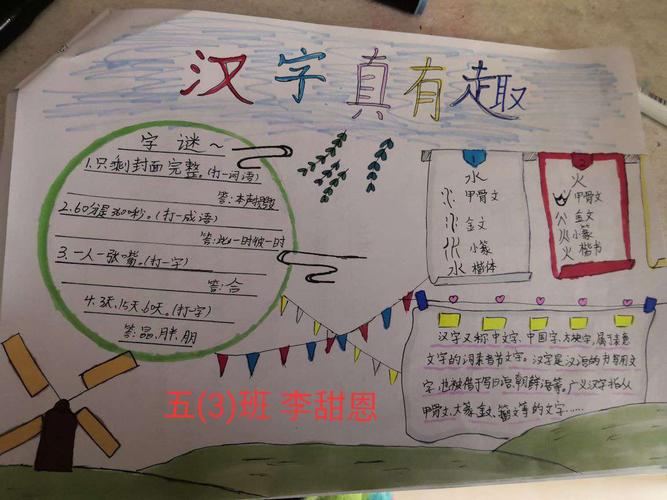 汉字真有趣
字谜~
1.只剩封面完整。(打一词语)
答:本
2.60分是3600秒。(打一成语)
答:此一时彼一时
3.一人一张嘴。(打一字)
答:合
4.3天,15天,60天。(打一字)
答:晶,胖,朋
水
甲骨文
金文
小篆
水 楷体
火
甲骨文
金文
火 小篆
火 楷书
汉字又称中文字、中国字、方块字,属于表意
文字的词素音节文字。汉字是汉语的书写用文
字,也被借于写日语、朝鲜语等。广义汉字指从
甲骨文、大篆、金文、籀文等的文字……
五(3)班 李甜恩